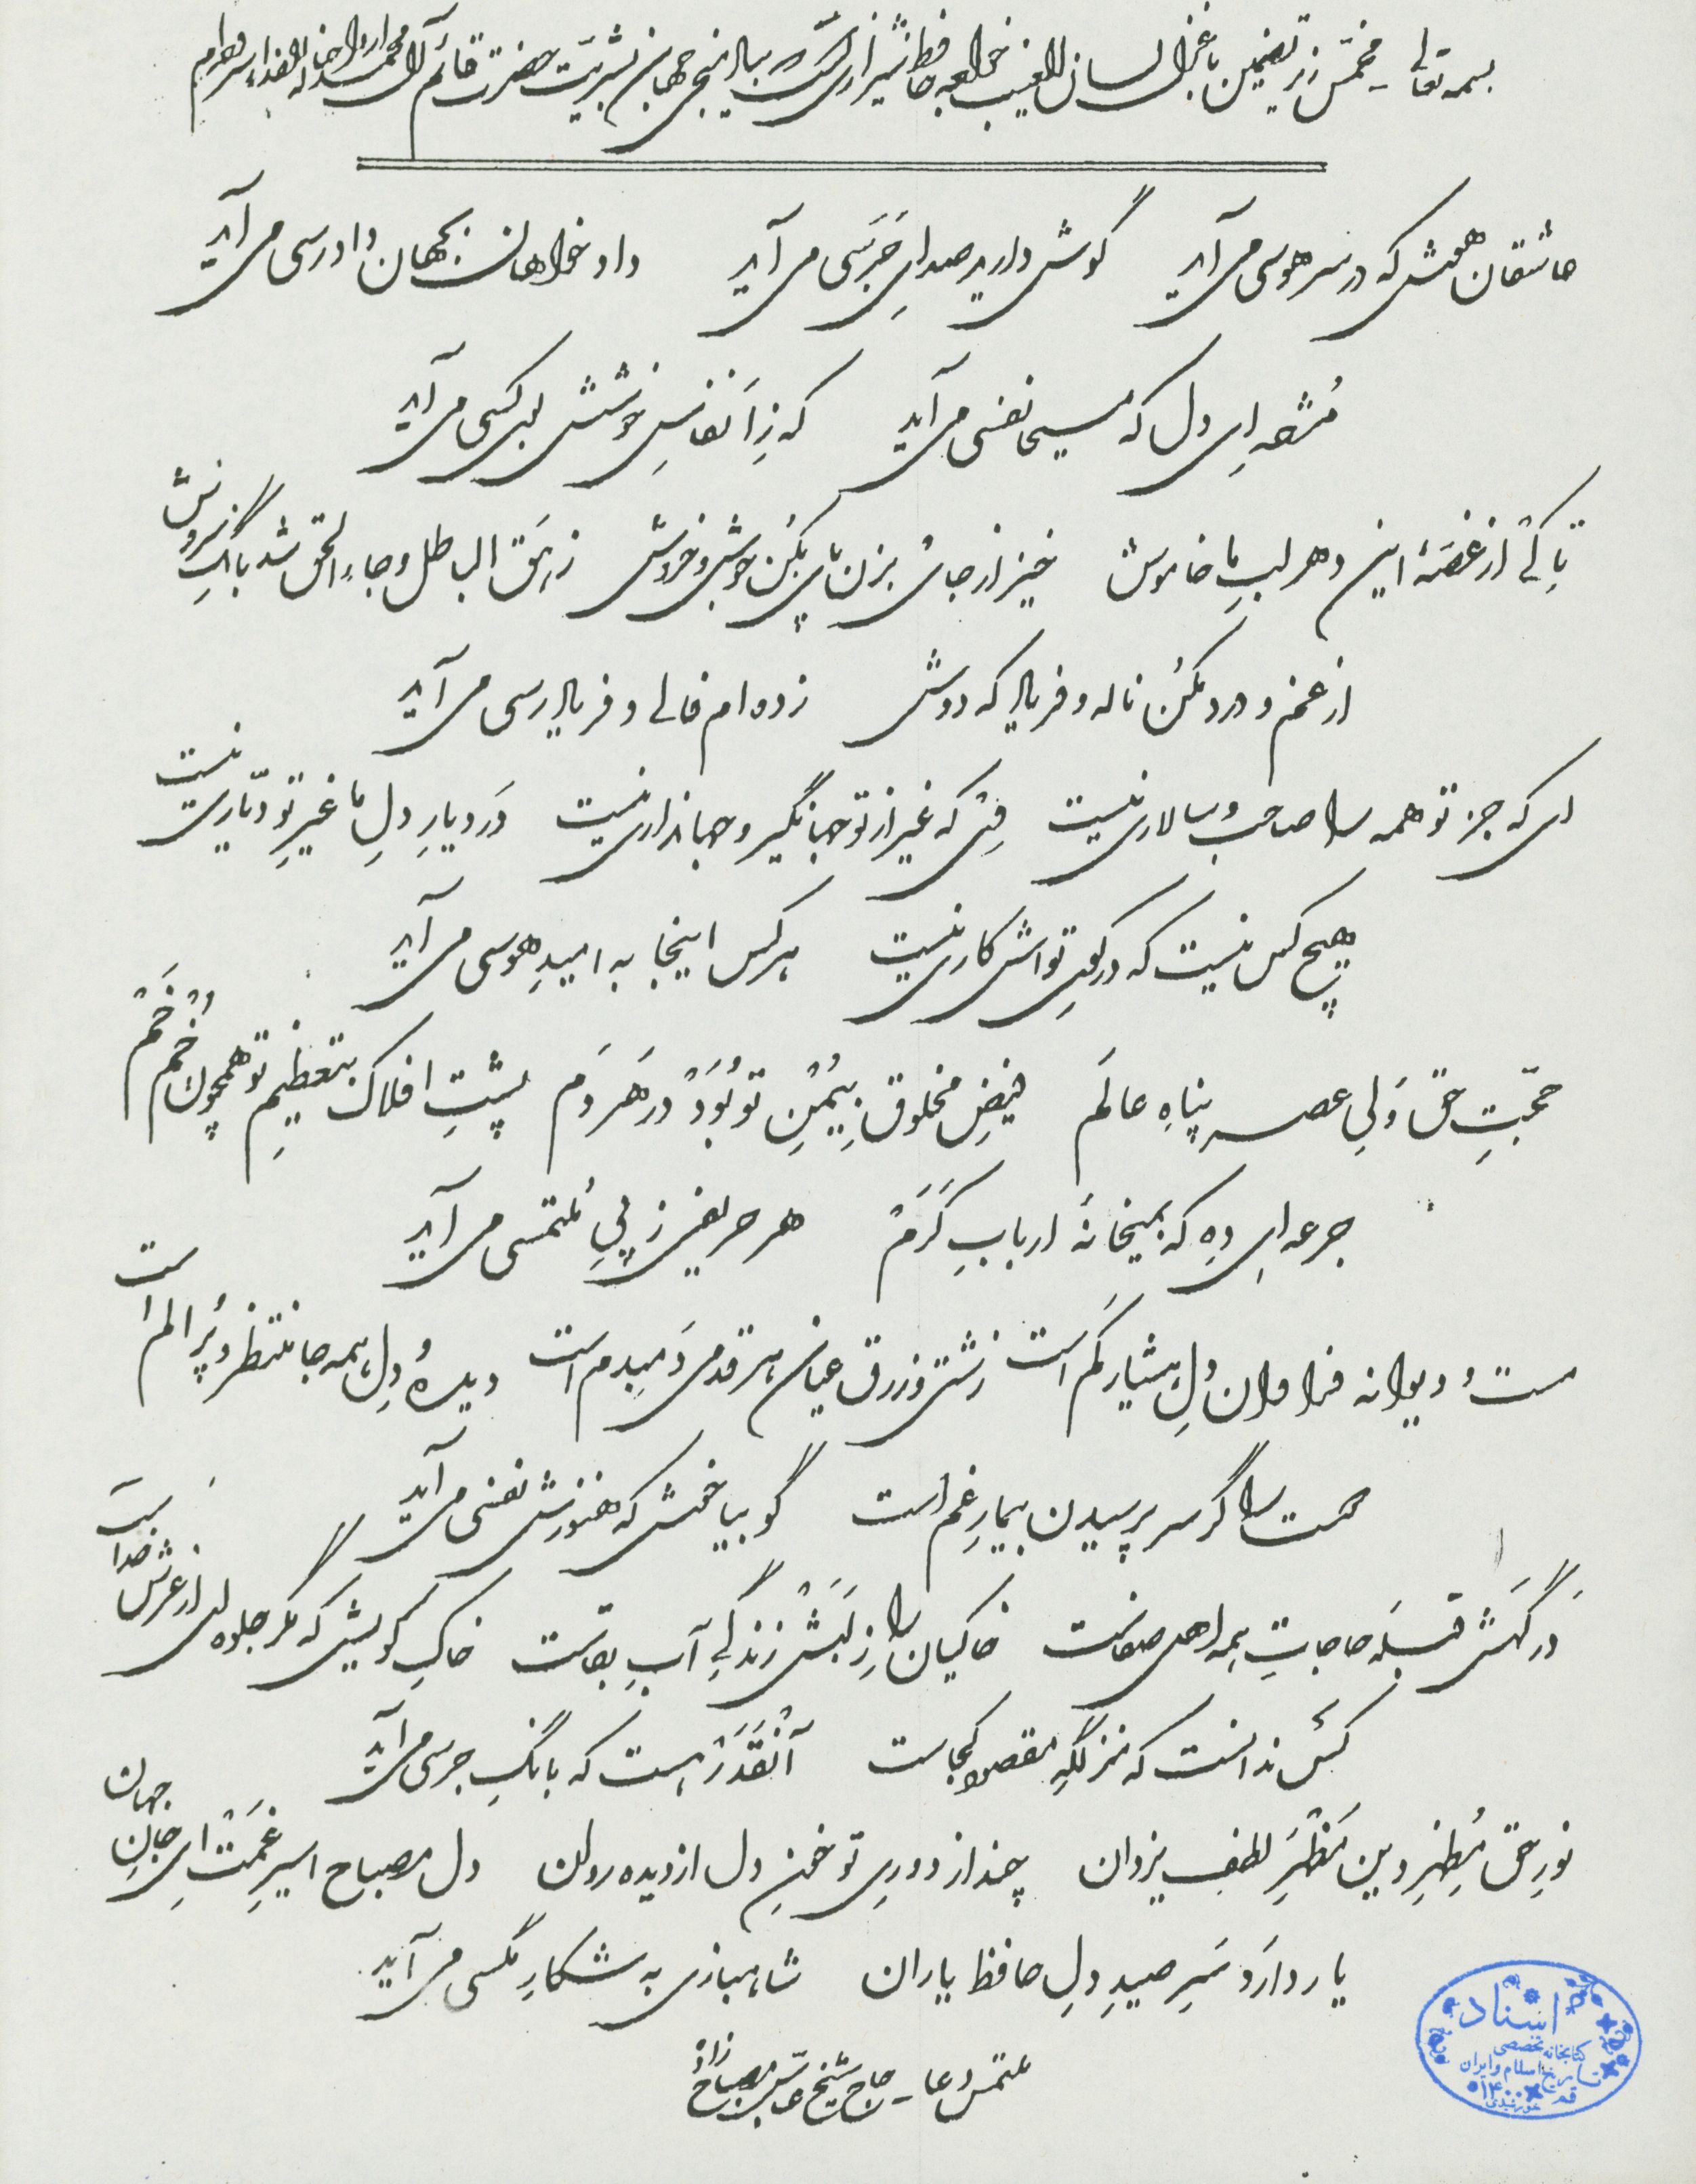 بسمه تعالی - مخمس زیر تضمین با غزل لسان الغیب خواجه حافظ شیرازی است بیاد منجی جهان بشریت حضرت قائم آل محمد ارواحنا له الفداء
عاشقان همتی که در سر هوسی می‌آید گوش دارید صدای جَرَسی می‌آید داد خواهان بجهان دادرسی می‌آید
مُژده ای دل که مسیحا نفسی می‌آید که زِ اَنفاسِ خوشش بوی کسی می‌آید
تا کی از غصّهٔ این دهر لبِ ما خاموش خیز از جای بزن نای بکُن جوش و خروش زَهَقَ الباطل و جاء الحق شد بانگِ سروش
از غم و درد مکُن ناله و فریاد که دوش زده‌ام فالی و فریاد رسی می‌آید
ای که جز تو همه را صاحب و سالاری نیست فِی که غیر از تو جهانگیر و جهانداری نیست دَر دیارِ دلِ ما غیرِ تو دیّاری نیست
هیچ کس نیست که در کویِ تواش کاری نیست هر کس اینجا به امیدِ هوسی می‌آید
حجّتِ حق وَلیِ عصر پناهِ عالَم فیضِ مخلوق بِیُمْنِ تو بُوَدْ در هَر دَم پشتِ افلاک بتعظیمِ تو همچون خُم خَمْ
جرعه‌ای دِه که بمیخانهٔ اربابِ کَرَمْ هر حریفی زِ پیِ مُلتمسی می‌آید
مست و دیوانه فراوان دلِ هشیار کم است زشتی و زرق عیان هر قدمی دَمبدم است دیده و دل همه جا منتظر و پُر الم است
دوست را گر سر پرسیدن بیمارِ غم است گو بیا خوش که هنوزش نفسی می‌آید
دَرگهش قبله حاجاتِ همه اهل صفاست خاکیان را زِ لَبَش زندگیِ آبِ بقاست خاکِ کویش که مگر جلوه‌ای از عرشِ خداست
کَس ندانست که منزلگهِ مقصود کجاست آنْقَدَرْ هست که بانگِ جرسی می‌آید
نورِ حق مُظهِرِ دین مَظهَرِ لطفِ یزدان چند از دوریِ تو خونِ دل از دیده روان دل مصباح اسیرِ غَمَتْ ای جانِ جهان
یار دارَد سَرِ صیدِ دلِ حافظ یاران شاهبازی به شکارِ مگسی می‌آید
ملتمس دعا - حاج شیخ عباس مصباح زاده
اسناد
کتابخانه تخصصی
تاریخ اسلام و ایران
قم ۱۴۰۰
خورشیدی